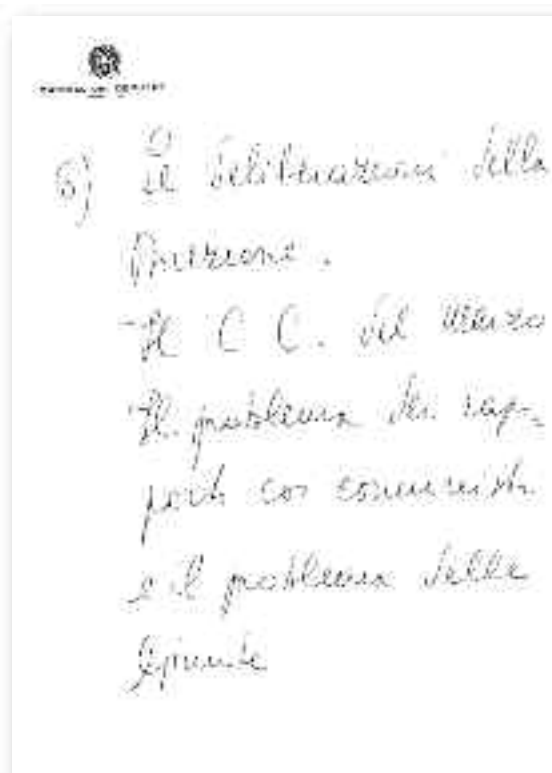 CAMERA DEI DEPUTATI
6) Le deliberazioni della
Direzione.
- Il C C. del marzo
- Il problema dei rap-
porti coi comunisti
e il problema delle
Giunte